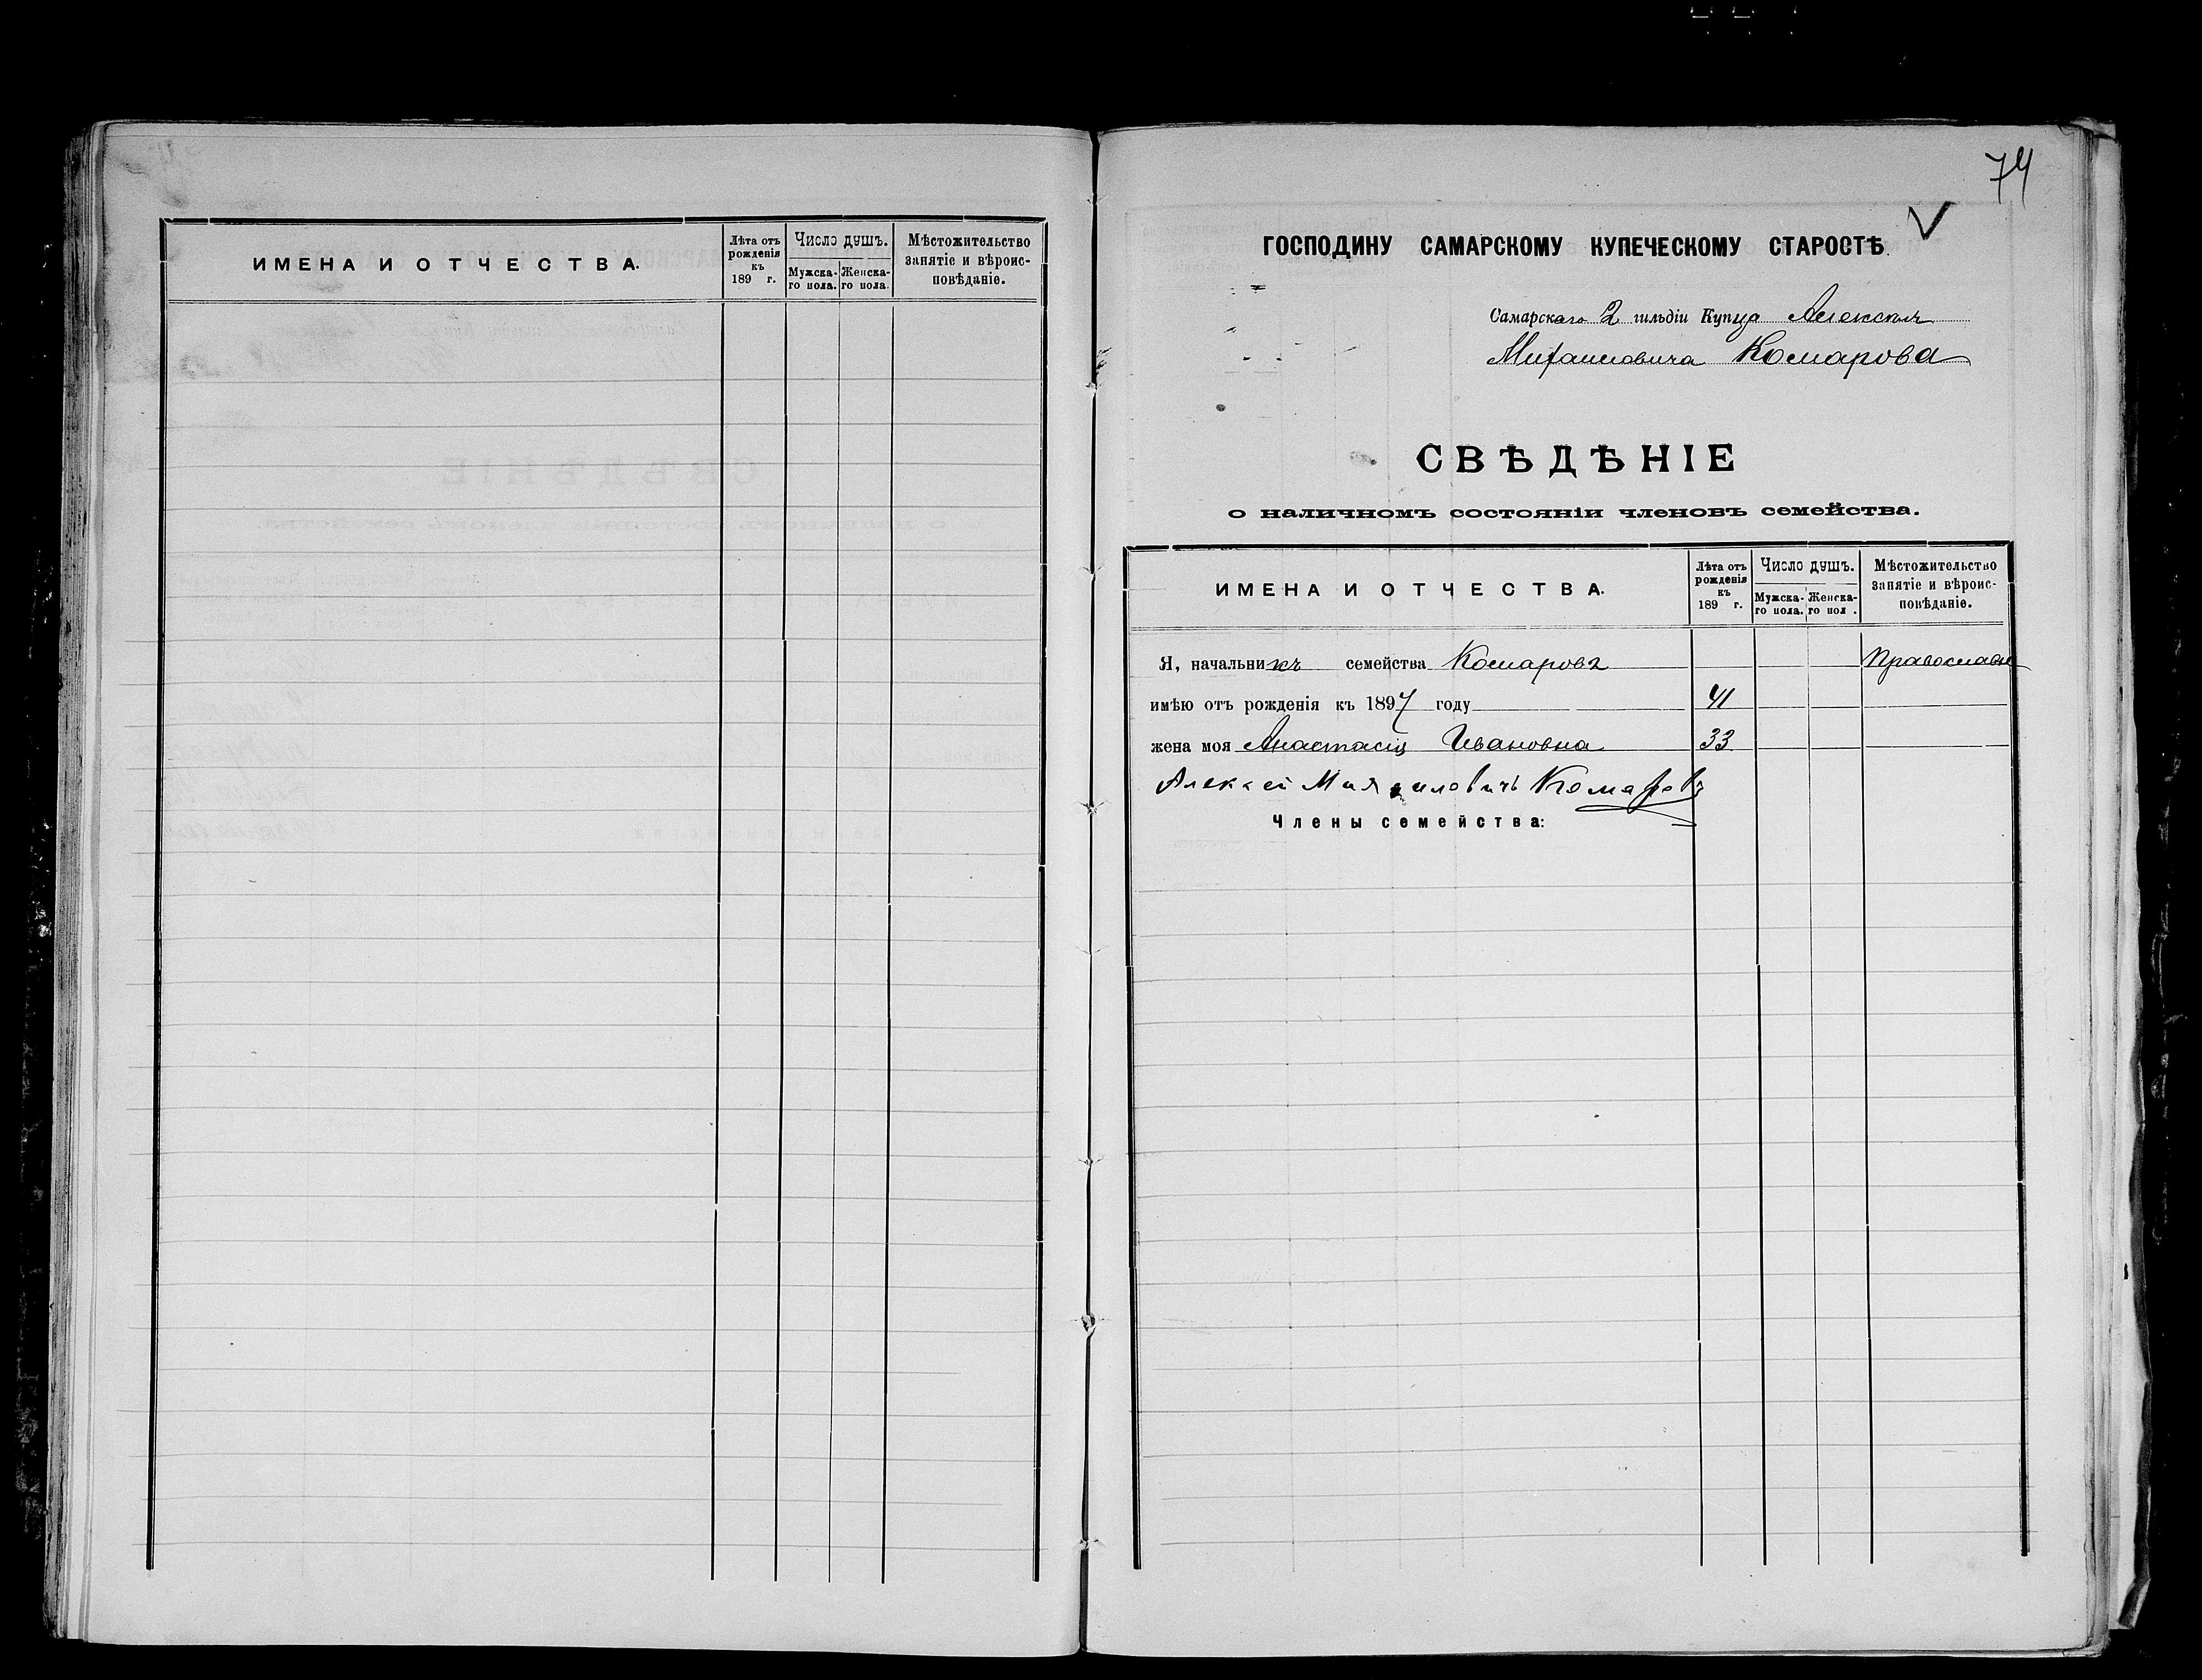 ИМЕНА И ОТЧЕСТВА.
Лѣта отъ рожденія къ 189 г.
Число душъ.
Мужска-го пола.
Женска-го пола.
Мѣстожительство
занятіе и вѣроис-
повѣданіе.
74
ГОСПОДИНУ САМАРСКОМУ КУПЕЧЕСКОМУ СТАРОСТѢ.
Самарскаго 2 гильдіи Купца Алексѣя
Михайловича Комарова
СВѢДѢНІЕ
о наличномъ состояніи членовъ семейства.
ИМЕНА И ОТЧЕСТВА.
Лѣта отъ рожденія къ 189 г.
Число душъ.
Мужска-го пола.
Женска-го пол .
Мѣстожительство
занятіе и вѣроис-
повѣданіе.
Я, начальникъ семейства Комаровъ Православн
имѣю отъ рожденія къ 1897 году 41
жена моя Анастасія Ивановна 33
Алексѣй Михаиловичъ Комаровъ
Члены семейства: